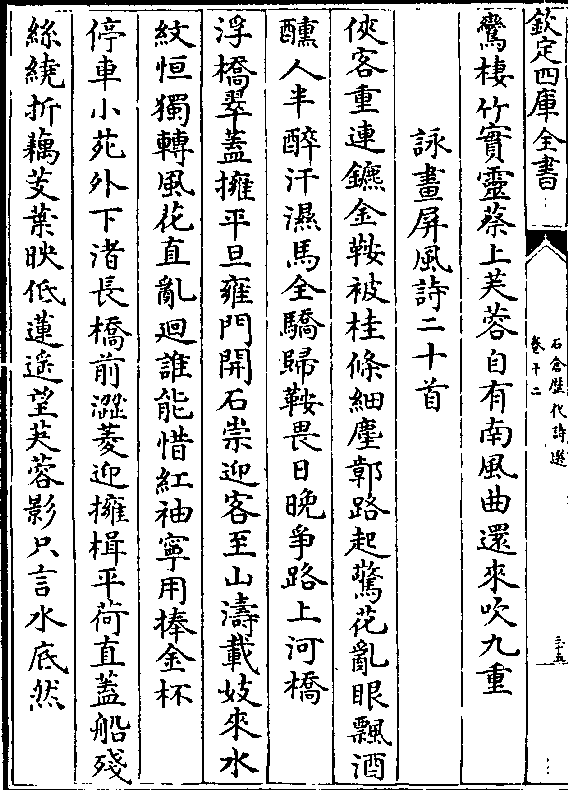 欽定四庫全書
石倉歷代詩選
卷十二
三十五
鸞棲竹實靈蔡上芙蓉自有南風曲還來吹九重
詠畫屏風詩二十首
俠客重連鑣金鞍被桂條細塵鄣路起驚花亂眼飄酒
醺人半醉汗濕馬全驕歸鞍畏日晚爭路上河橋
浮橋翠蓋擁平旦雍門開石崇迎客至山濤載妓來水
紋恒獨轉風花直亂迴誰能惜紅袖寧用捧金杯
停車小苑外下渚長橋前澀菱迎擁楫平荷直蓋船殘
絲繞折藕芰葉映低蓮遙望芙蓉影只言水底然